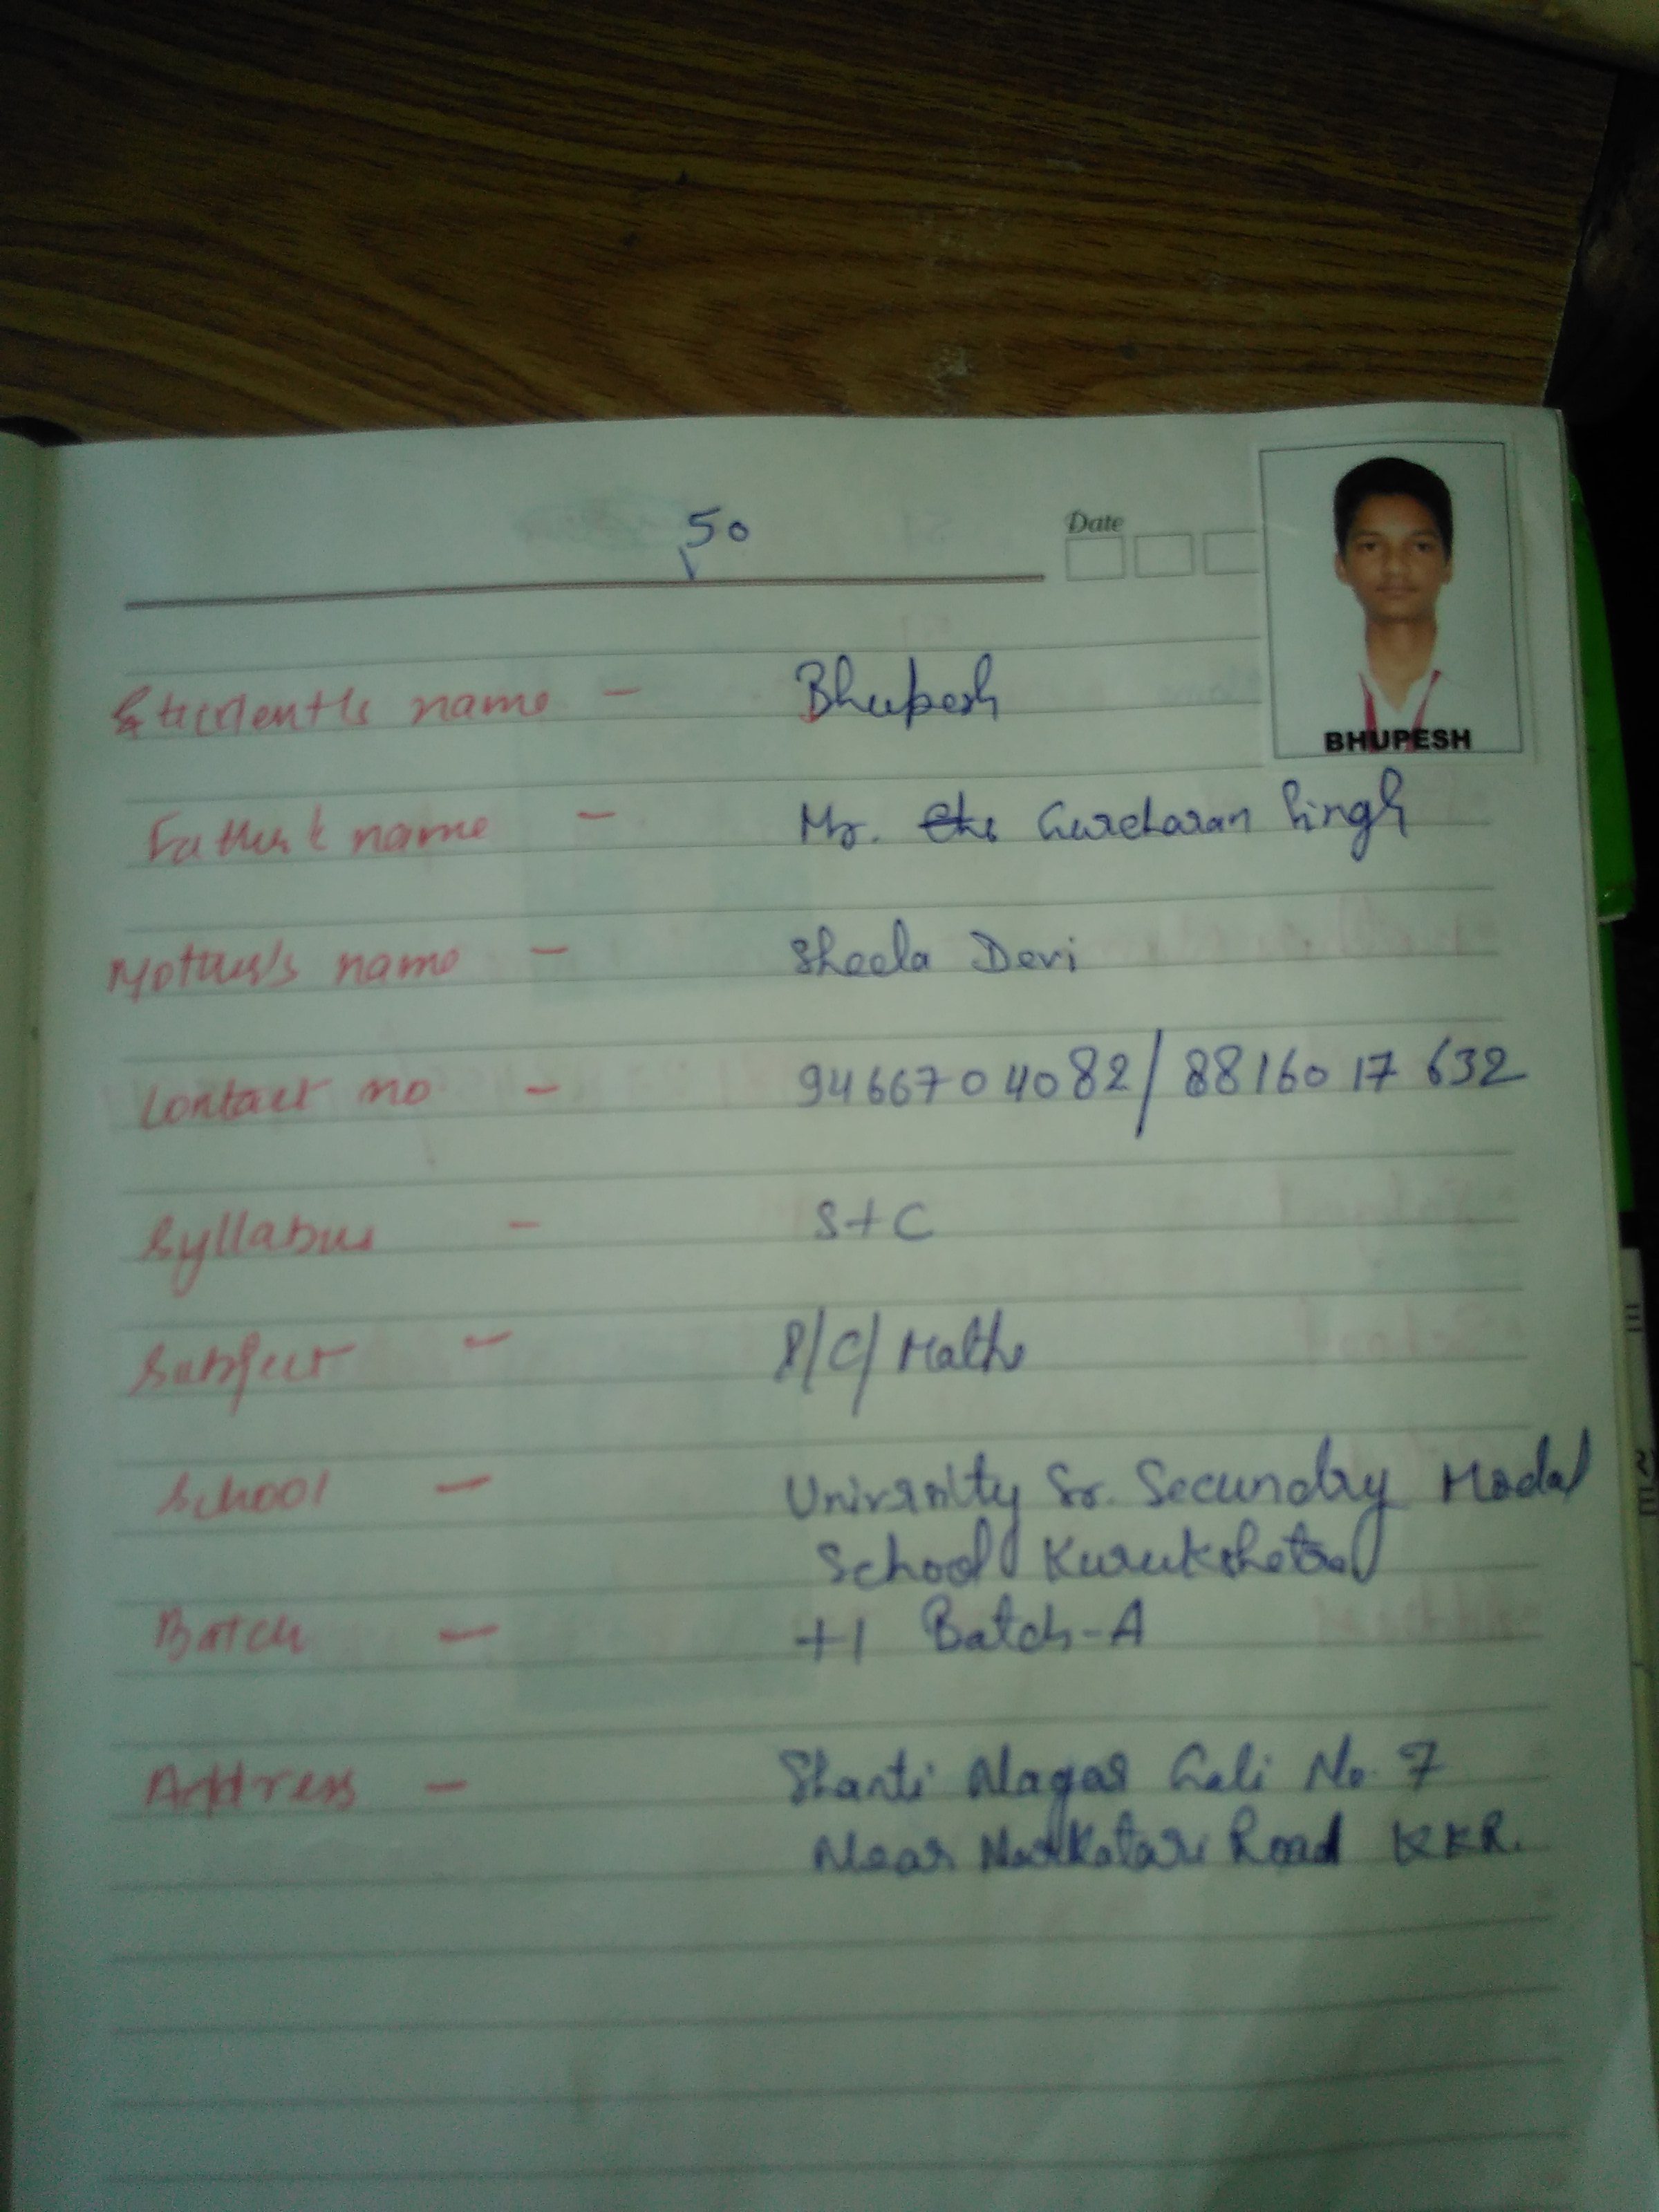 50
Date
BHUPESH
Student's name - Bhupesh
Father's name - Mr. Gurcharan Singh
Mother's name - Sheela Devi
Contact no - 9466704082/8816017632
Syllabus - S+C
Subject - P/C/Maths
School - University Sr. Secunday Modal
School Kurukshetra
Batch - +1 Batch-A
Address - Shanti Nagar Gali No. 7
Near Narkatari Road KKR.